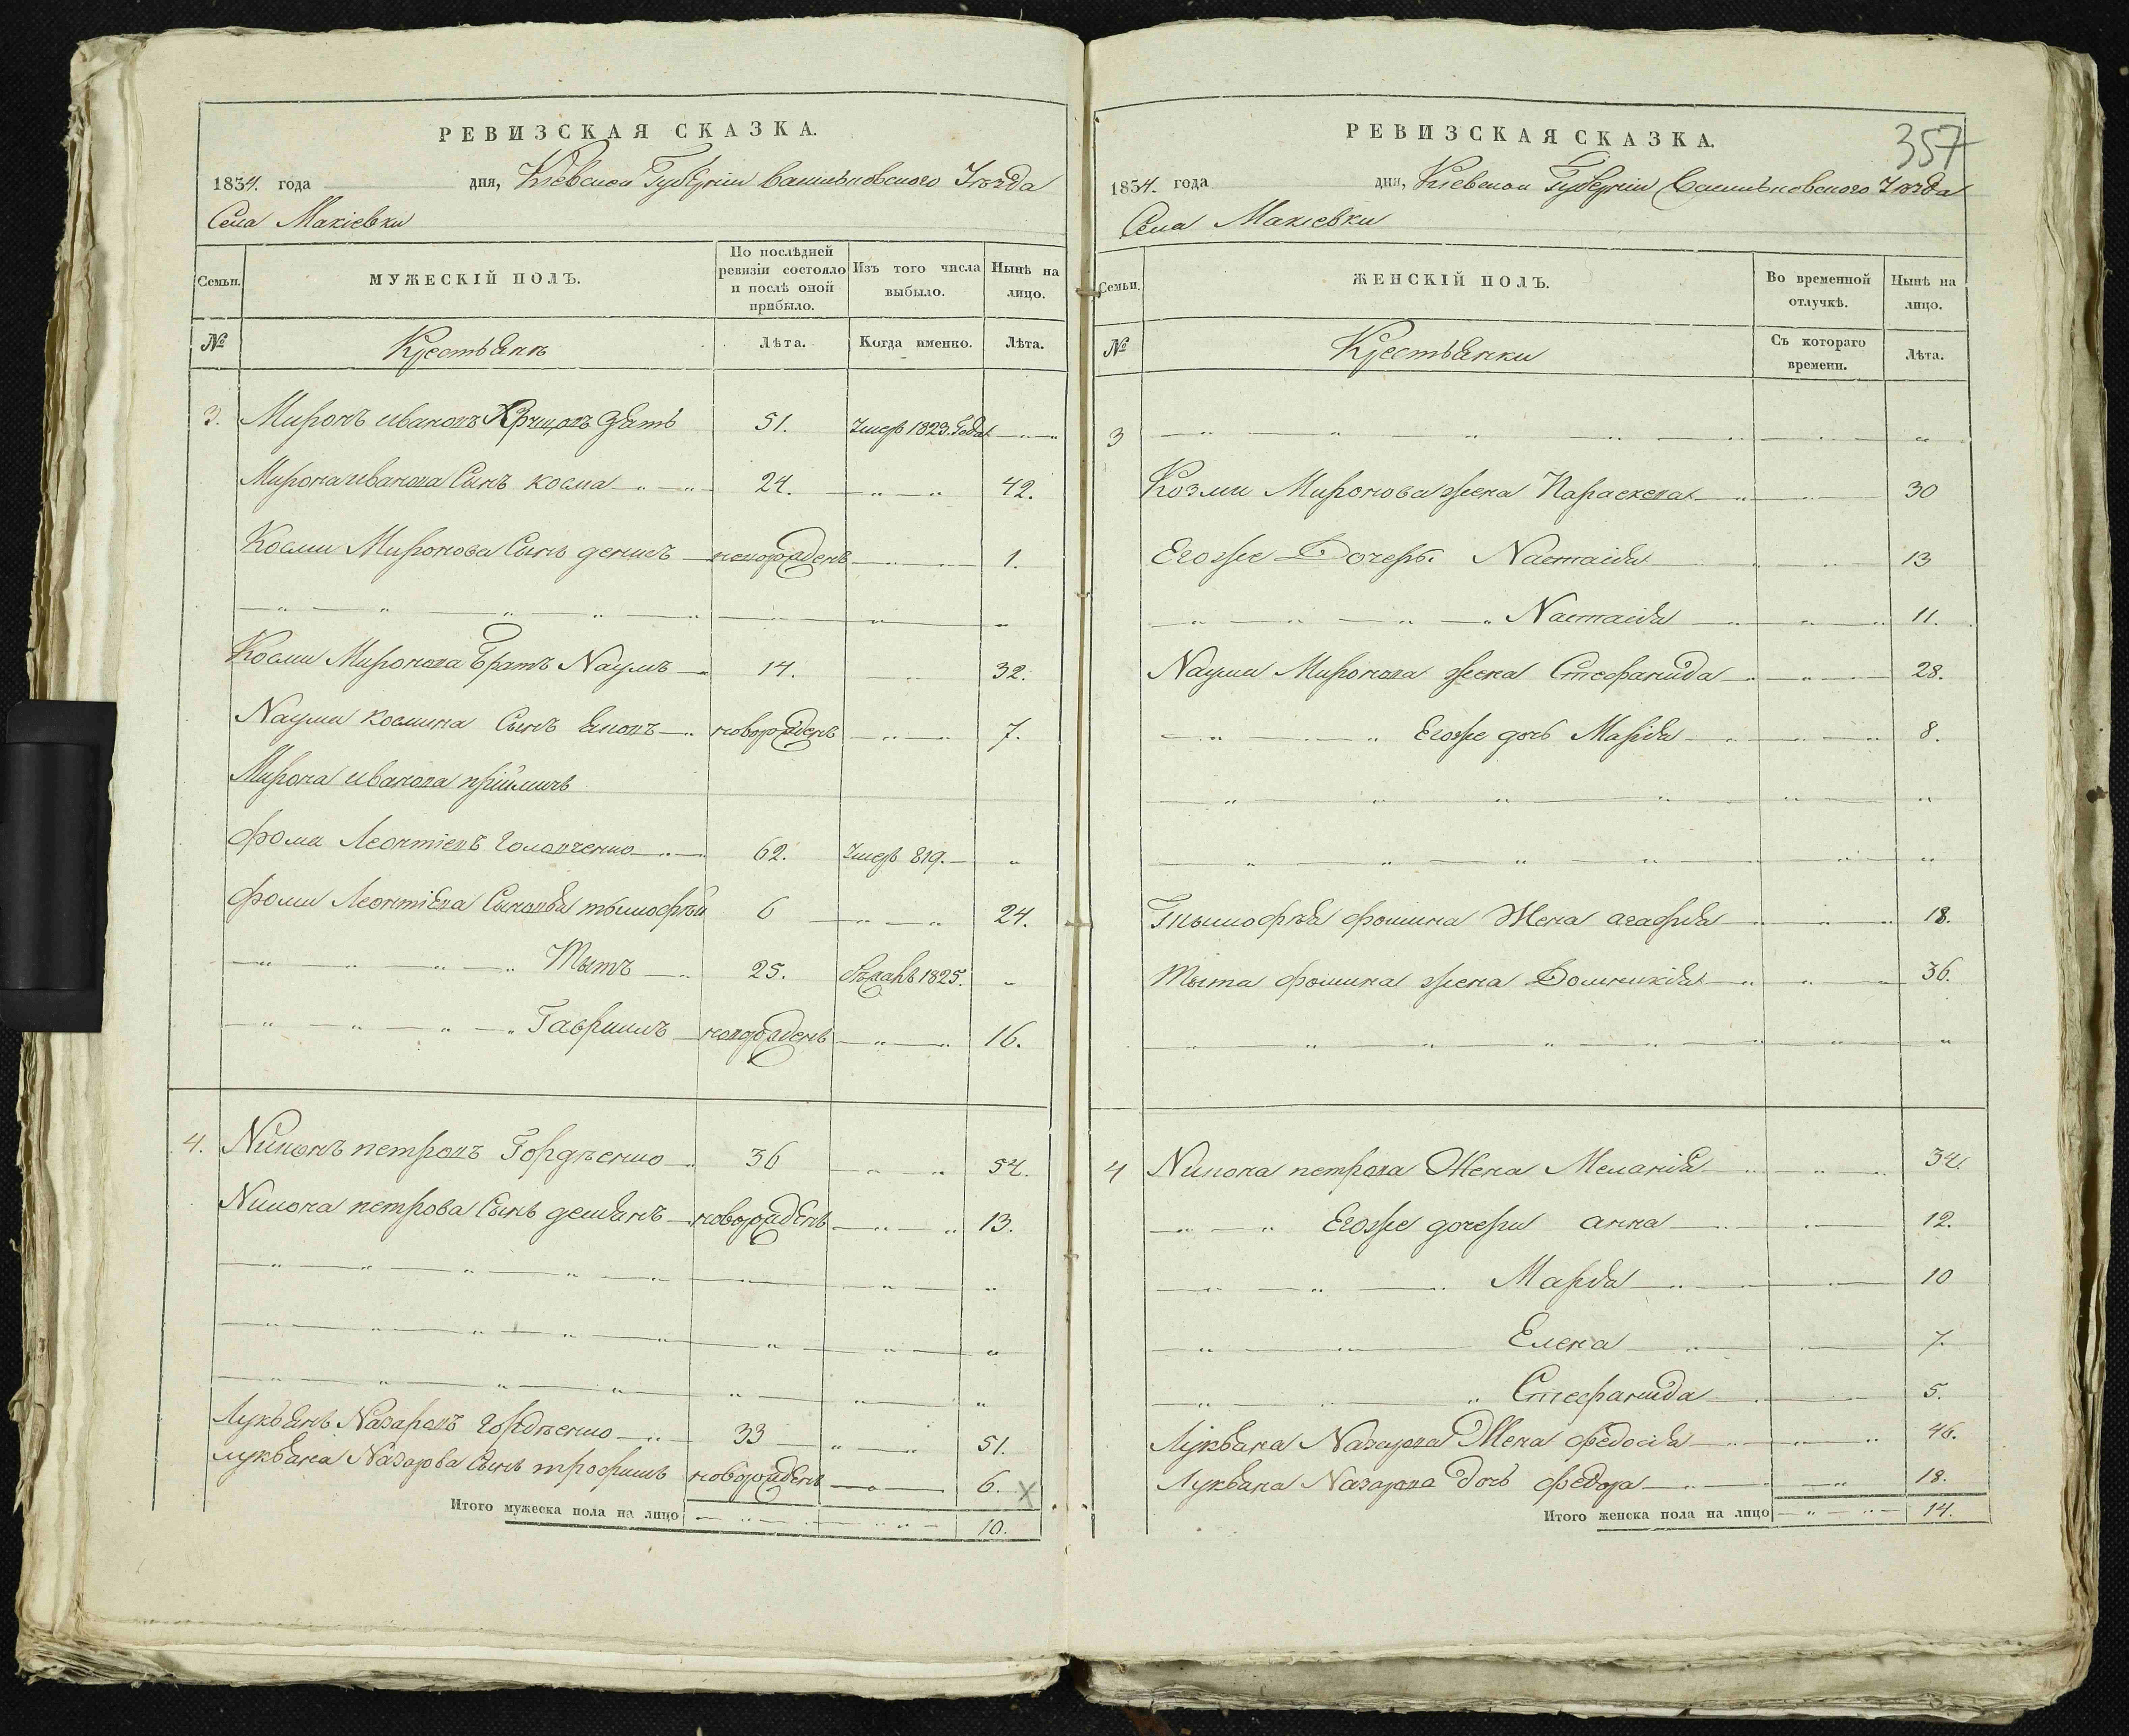 РЕВИЗСКАЯ СКАЗКА.
1834. года дня, Кіевской Губерніи Васильковского Уѣзда
Села Макіевки
Семьи.
МУЖЕСКІЙ ПОЛЪ.
По послѣдней ревизіи состояло и послѣ оной прибыло.
Изъ того числа выбыло.
Нынѣ на лицо.
№
Крестьянъ
Лѣта.
Когда именно.
Лѣта.
3. Миронъ Ивановъ зять 51. Умеръ 1823. Года
Мирона Иванова Сынъ Косма 24. 42.
Косми Миронова Сынъ Денисъ новорожденъ 1.
Косми Миронова Братъ Наумъ 14. 32.
Наума Космина Сынъ новорожденъ 7.
Мирона Иванова пріймичъ
Фома Леонтіевъ 62. Умеръ 819.
Фоми Леонтіева Сыновья Тымофѣй 6 24.
Тытъ 25. 1825.
Гаврыилъ новорожденъ 16.
4. Никонъ Петровъ Гордѣенко 36 54.
Никона Петрова Сынъ Демьянъ новорожденъ 13.
Лукьянъ Назаровъ Гордѣенко 33 51.
Лукьяна Назарова Сынъ Трофимъ новорожденъ 6. X
Итого мужеска пола на лицо 10.
РЕВИЗСКАЯ СКАЗКА.
357
1834. года дня, Кіевской Губерніи Васильковского Уѣзда
Села Макіевки
Семьи.
ЖЕНСКІЙ ПОЛЪ.
Во временной отлучкѣ.
Нынѣ на лицо.
№
Крестьянки
Съ котораго времени.
Лѣта.
3
Козми Миронова жена Параскева 30
Егоже Дочерь Настасія 13
Настасія 11.
Наума Миронова жена Стефанида 28.
Егоже дочь Марія 8.
Тымофѣя Фомина Жена Агафья 18.
Тыта Фомина жена Домникія 36.
4 Никона Петрова Жена Меланія 34.
Егоже дочери Анна 12.
Марья 10
Елена 7.
Стефанида 5.
Лукьяна Назарова Жена Федосія 46.
Лукьяна Назарова дочь Федора 18.
Итого женска пола на лицо 14.